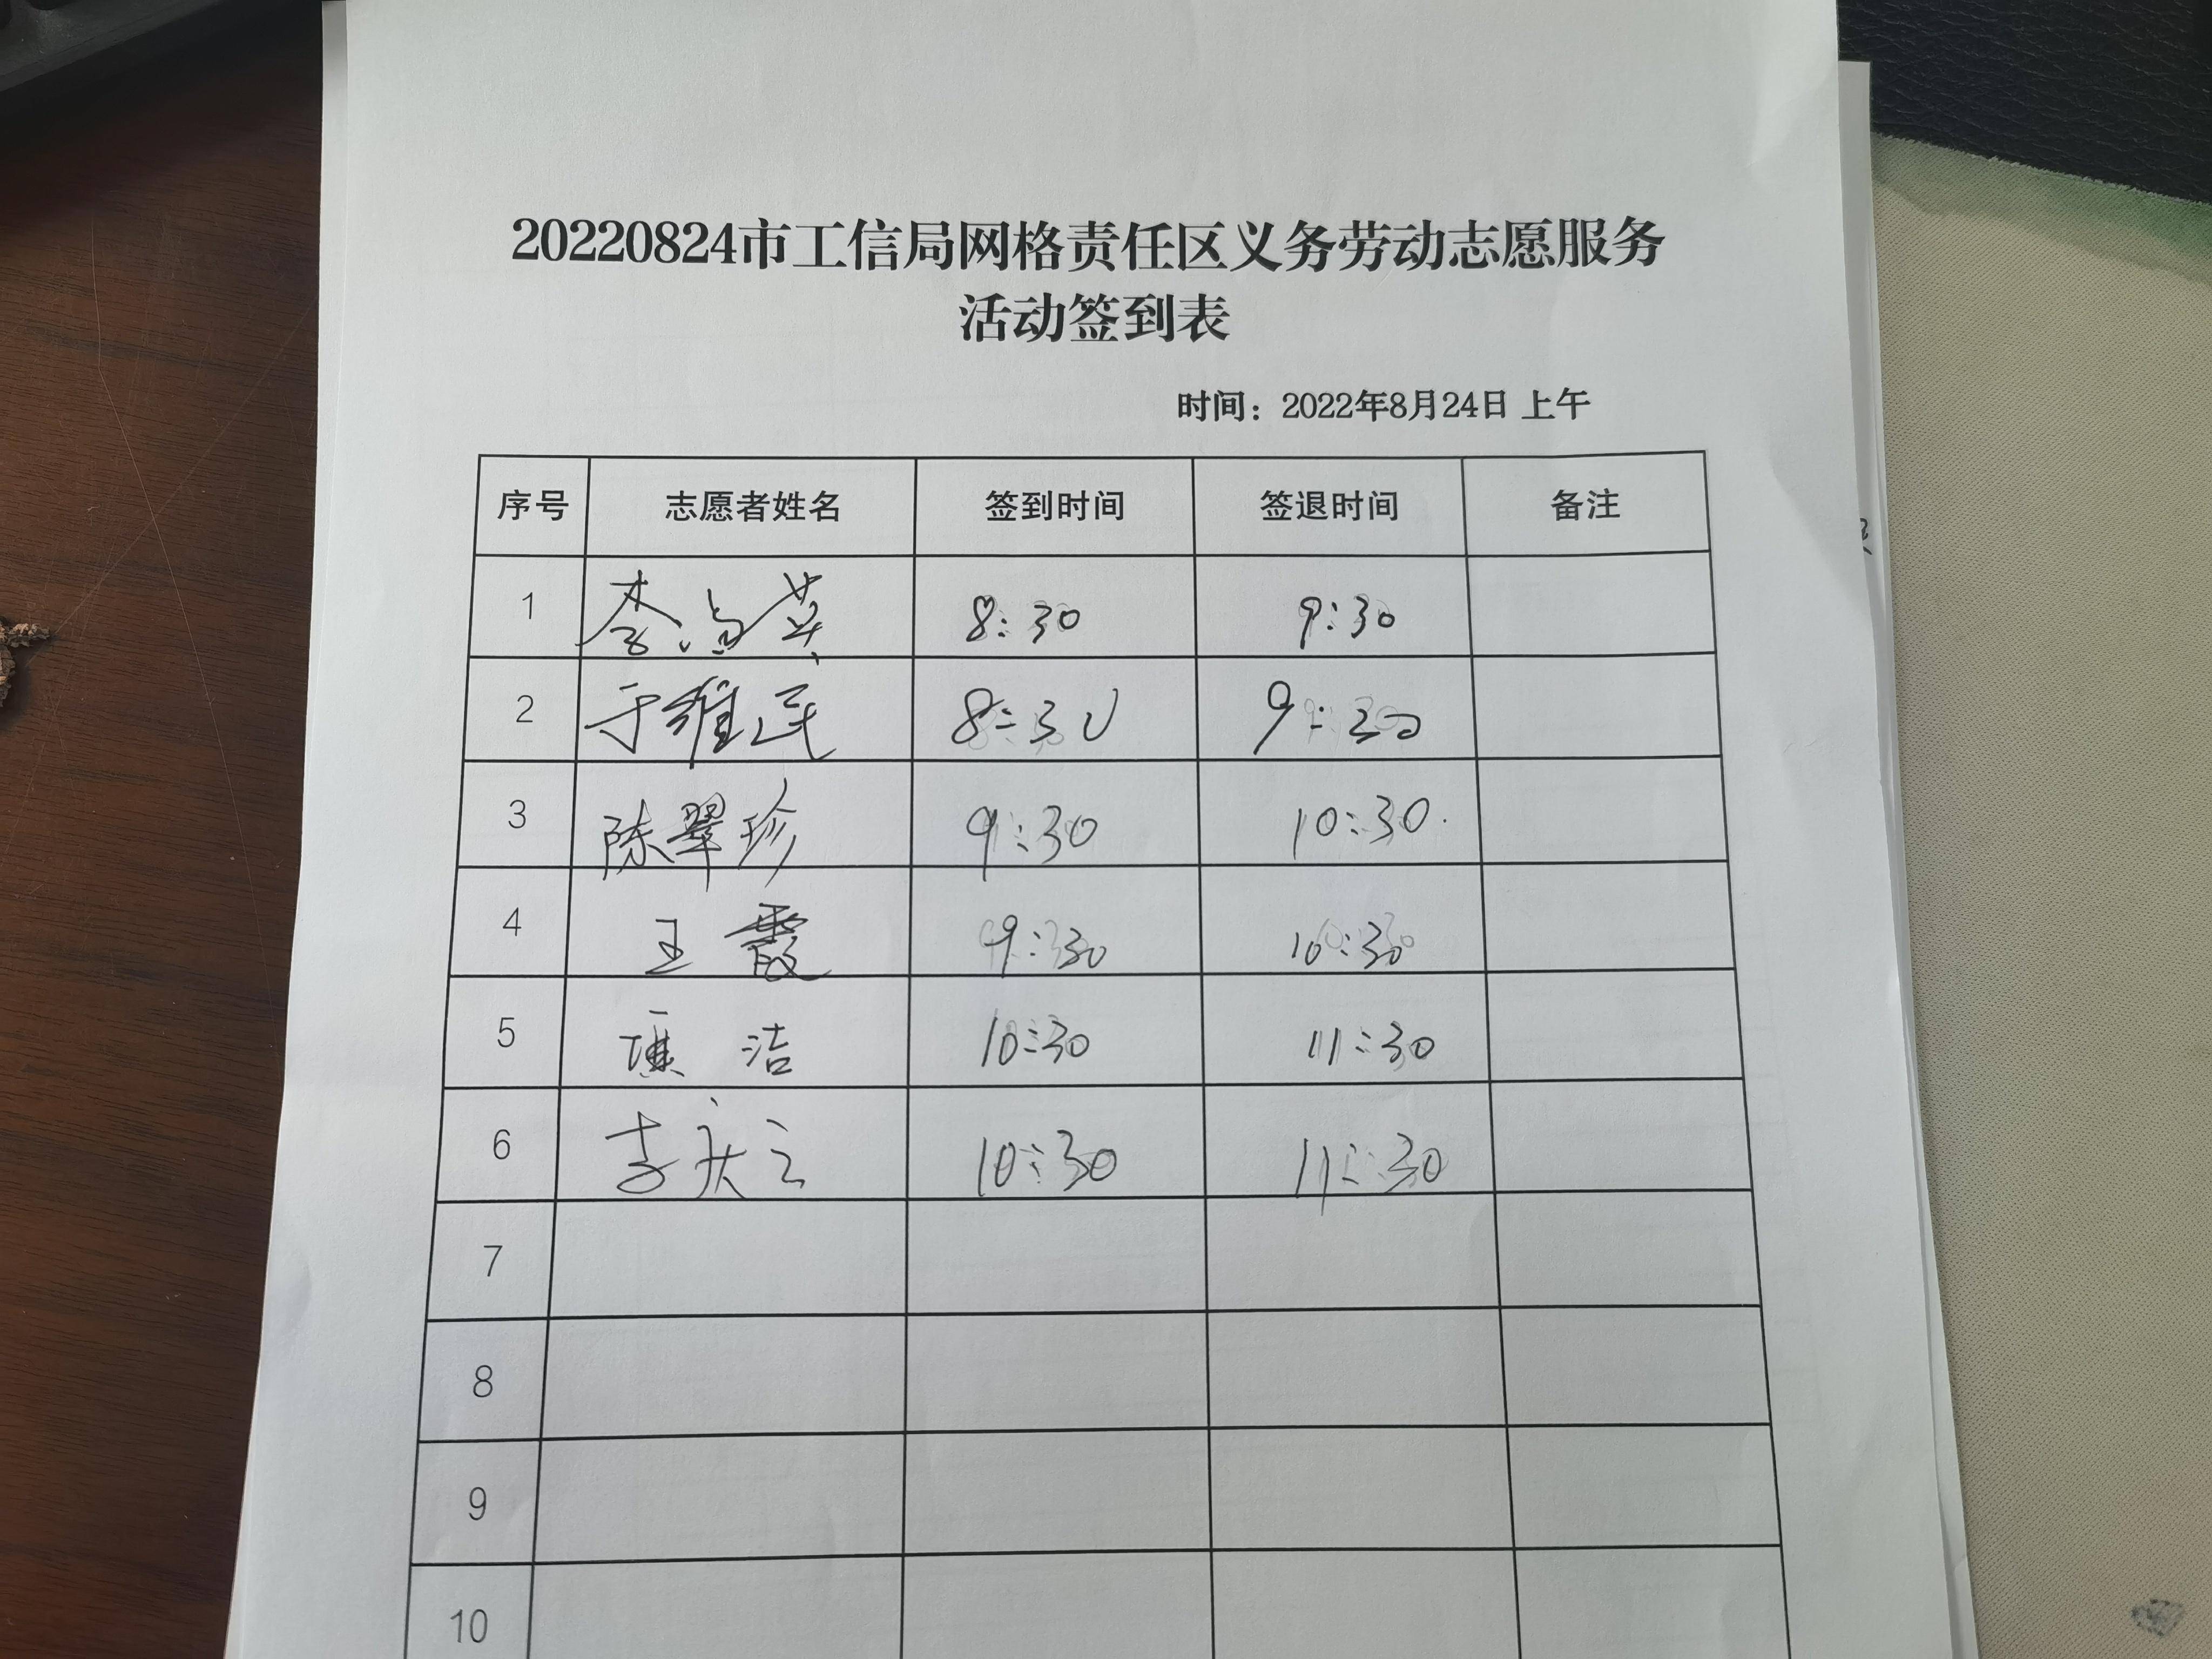 20220824市工信局网格责任区义务劳动志愿服务
活动签到表
时间：2022年8月24日 上午
序号 志愿者姓名 签到时间 签退时间 备注
1 李 英 8:30 9:30
2 于维民 8:30 9:30
3 陈翠珍 9:30 10:30
4 王霞 9:30 10:30
5 洁 10:30 11:30
6 李庆云 10:30 11:30
7
8
9
10